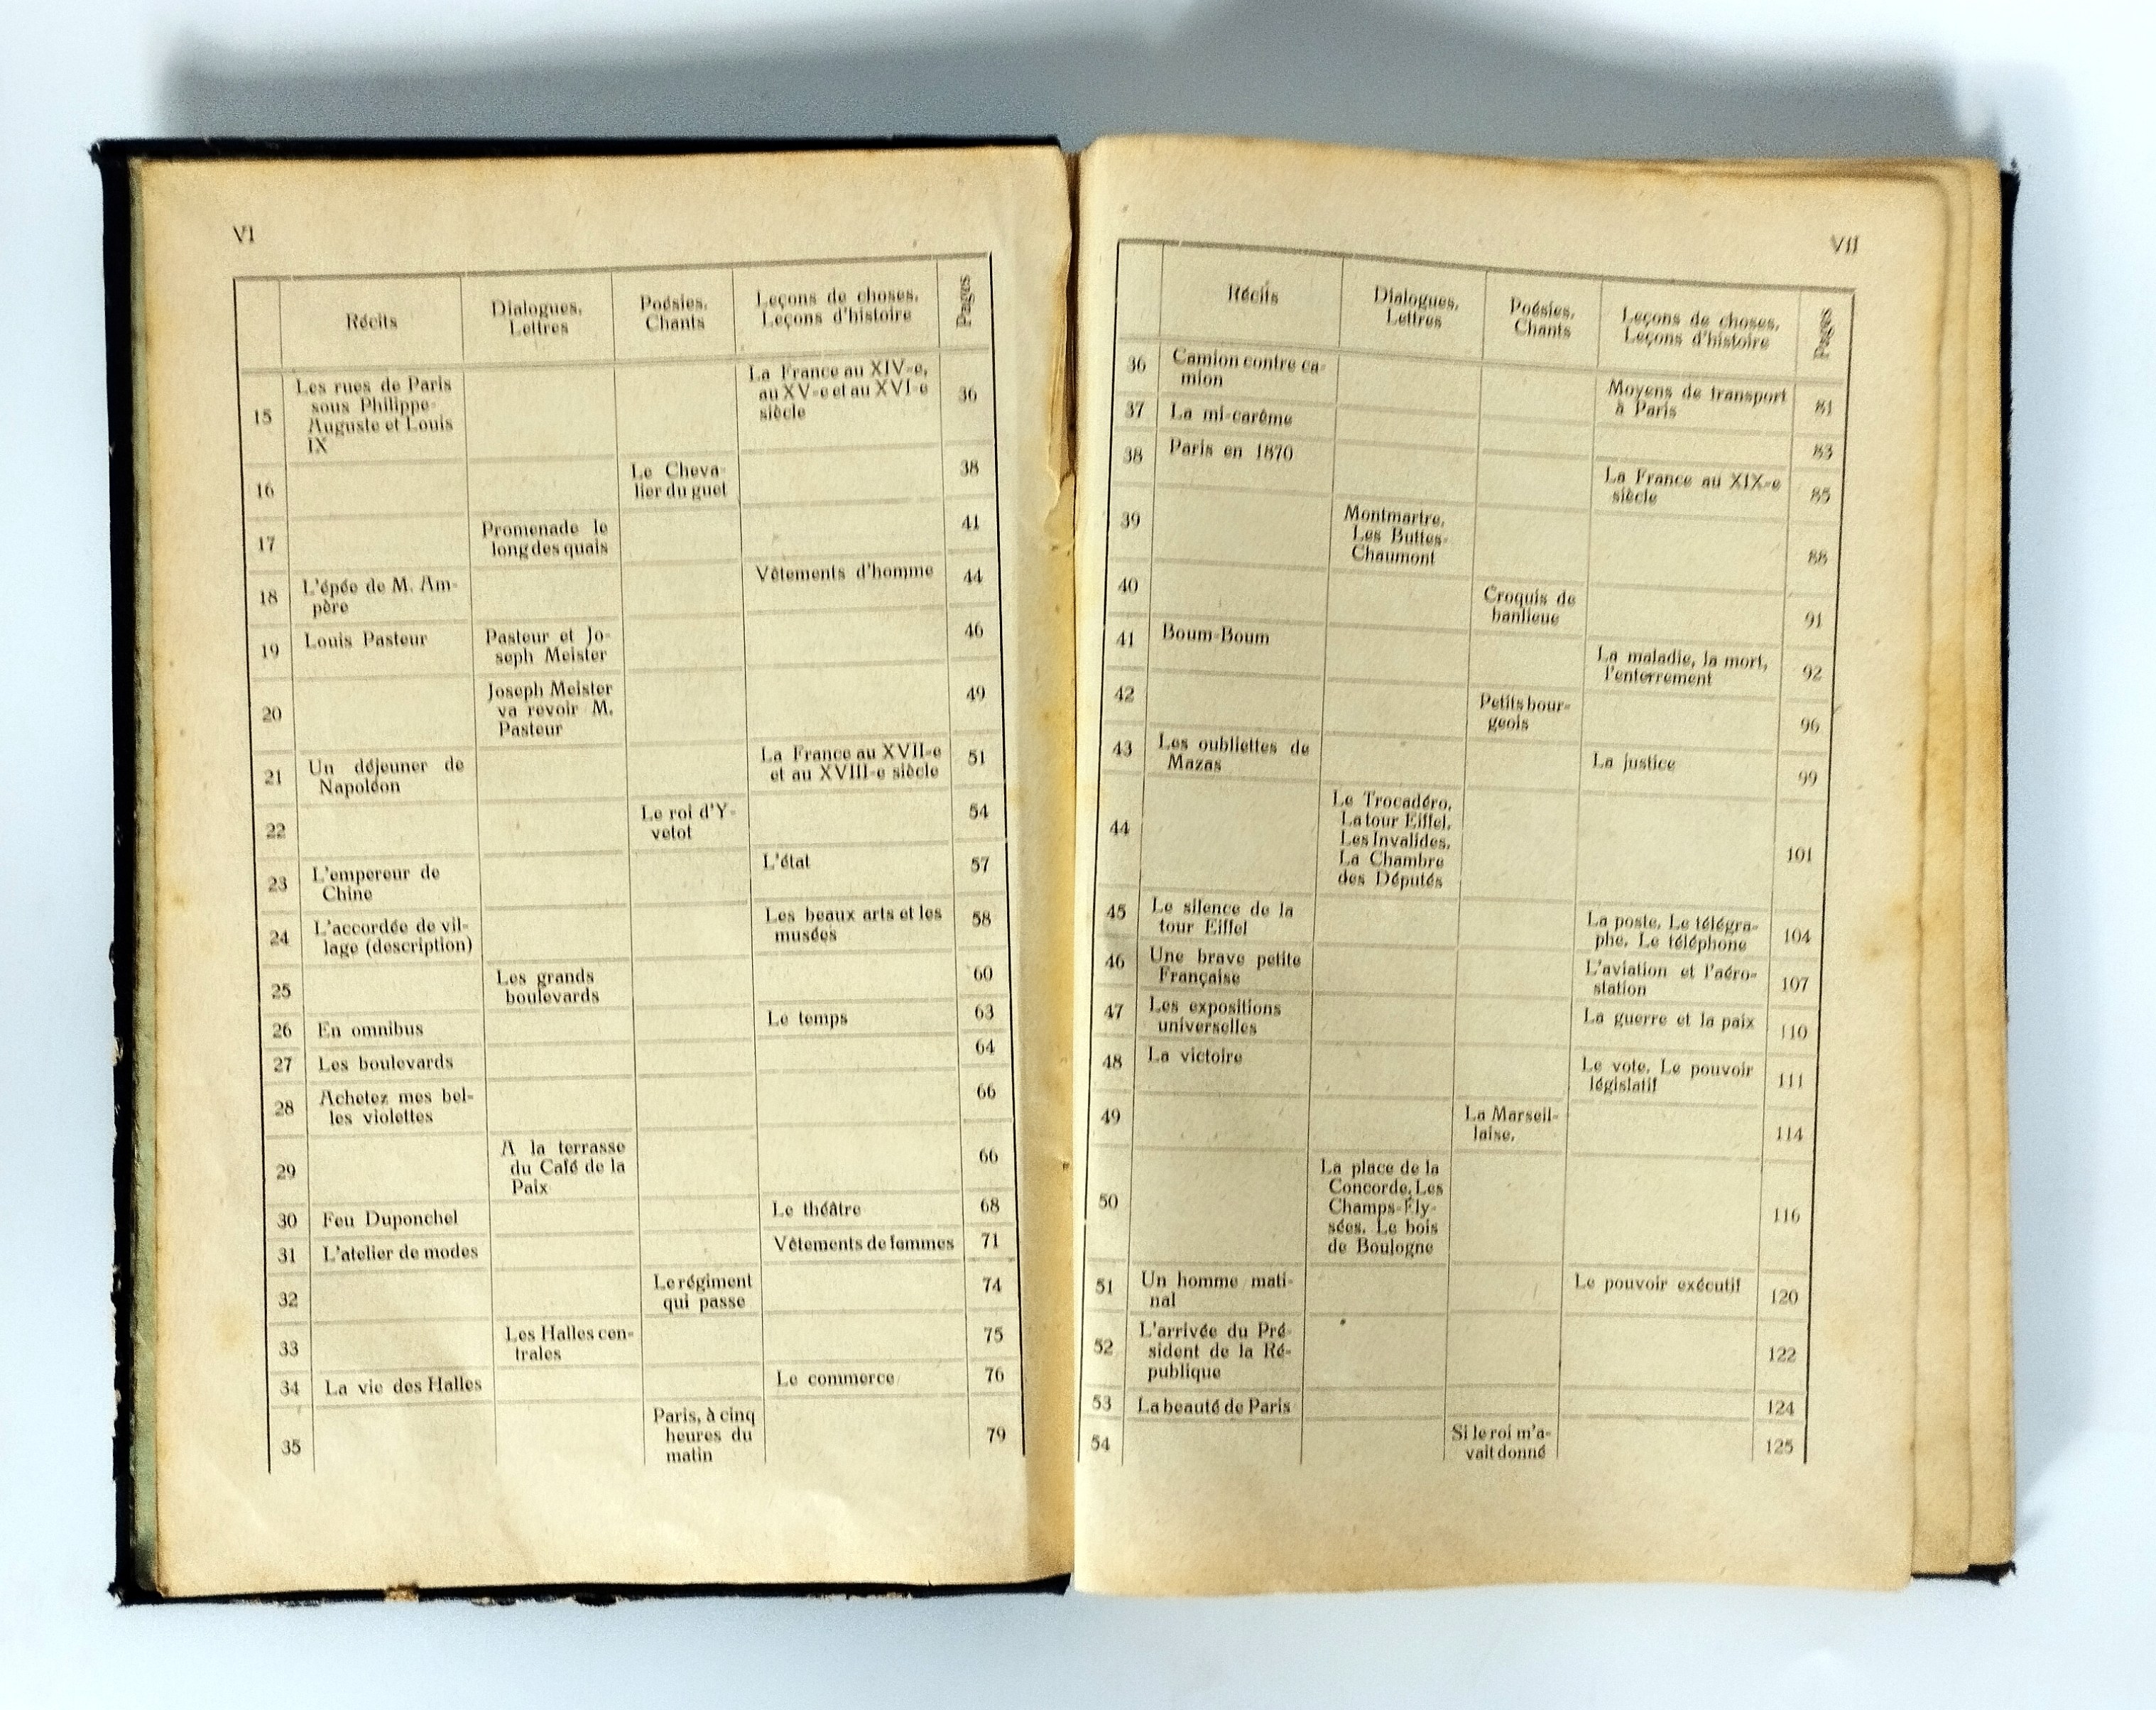 VI
Récits
Dialogues,
Lettres
Poésies,
Chants
Leçons de choses,
Leçons d'histoire
Pages
15
Les rues de Paris
sous Philippe-
Auguste et Louis
IX
La France au XIV-e,
au XV-e et au XVI-e
siècle
36
16
Le Cheva-
lier du guet
38
17
Promenade le
long des quais
41
18
L'épée de M. Am-
père
Vêtements d'homme
44
19
Louis Pasteur
Pasteur et Jo-
seph Meister
46
20
Joseph Meister
va revoir M.
Pasteur
49
21
Un déjeuner de
Napoléon
La France au XVII-e
et au XVIII-e siècle
51
22
Le roi d'Y-
vetot
54
23
L'empereur de
Chine
L'état
57
24
L'accordée de vil-
lage (description)
Les beaux arts et les
musées
58
25
Les grands
boulevards
60
26
En omnibus
Le temps
63
27
Les boulevards
64
28
Achetez mes bel-
les violettes
66
29
A la terrasse
du Café de la
Paix
66
30
Feu Duponchel
Le théâtre
68
31
L'atelier de modes
Vêtements de femmes
71
32
Le régiment
qui passe
74
33
Les Halles cen-
trales
75
34
La vie des Halles
Le commerce
76
35
Paris, à cinq
heures du
matin
79
VII
Récits
Dialogues,
Lettres
Poésies,
Chants
Leçons de choses,
Leçons d'histoire
Pages
36
Camion contre ca-
mion
Moyens de transport
à Paris
81
37
La mi-carême
83
38
Paris en 1870
La France au XIX-e
siècle
85
39
Montmartre,
Les Buttes-
Chaumont
88
40
Croquis de
banlieue
91
41
Boum-Boum
La maladie, la mort,
l'enterrement
92
42
Petits bour-
geois
96
43
Les oubliettes de
Mazas
La justice
99
44
Le Trocadéro,
La tour Eiffel,
Les Invalides,
La Chambre
des Députés
101
45
Le silence de la
tour Eiffel
La poste, Le télégra-
phe, Le téléphone
104
46
Une brave petite
Française
L'aviation et l'aéro-
station
107
47
Les expositions
universelles
La guerre et la paix
110
48
La victoire
Le vote, Le pouvoir
législatif
111
49
La Marseil-
laise,
114
50
La place de la
Concorde, Les
Champs-Ély-
sées, Le bois
de Boulogne
116
51
Un homme mati-
nal
Le pouvoir exécutif
120
52
L'arrivée du Pré-
sident de la Ré-
publique
122
53
La beauté de Paris
124
54
Si le roi m'a-
vait donné
125